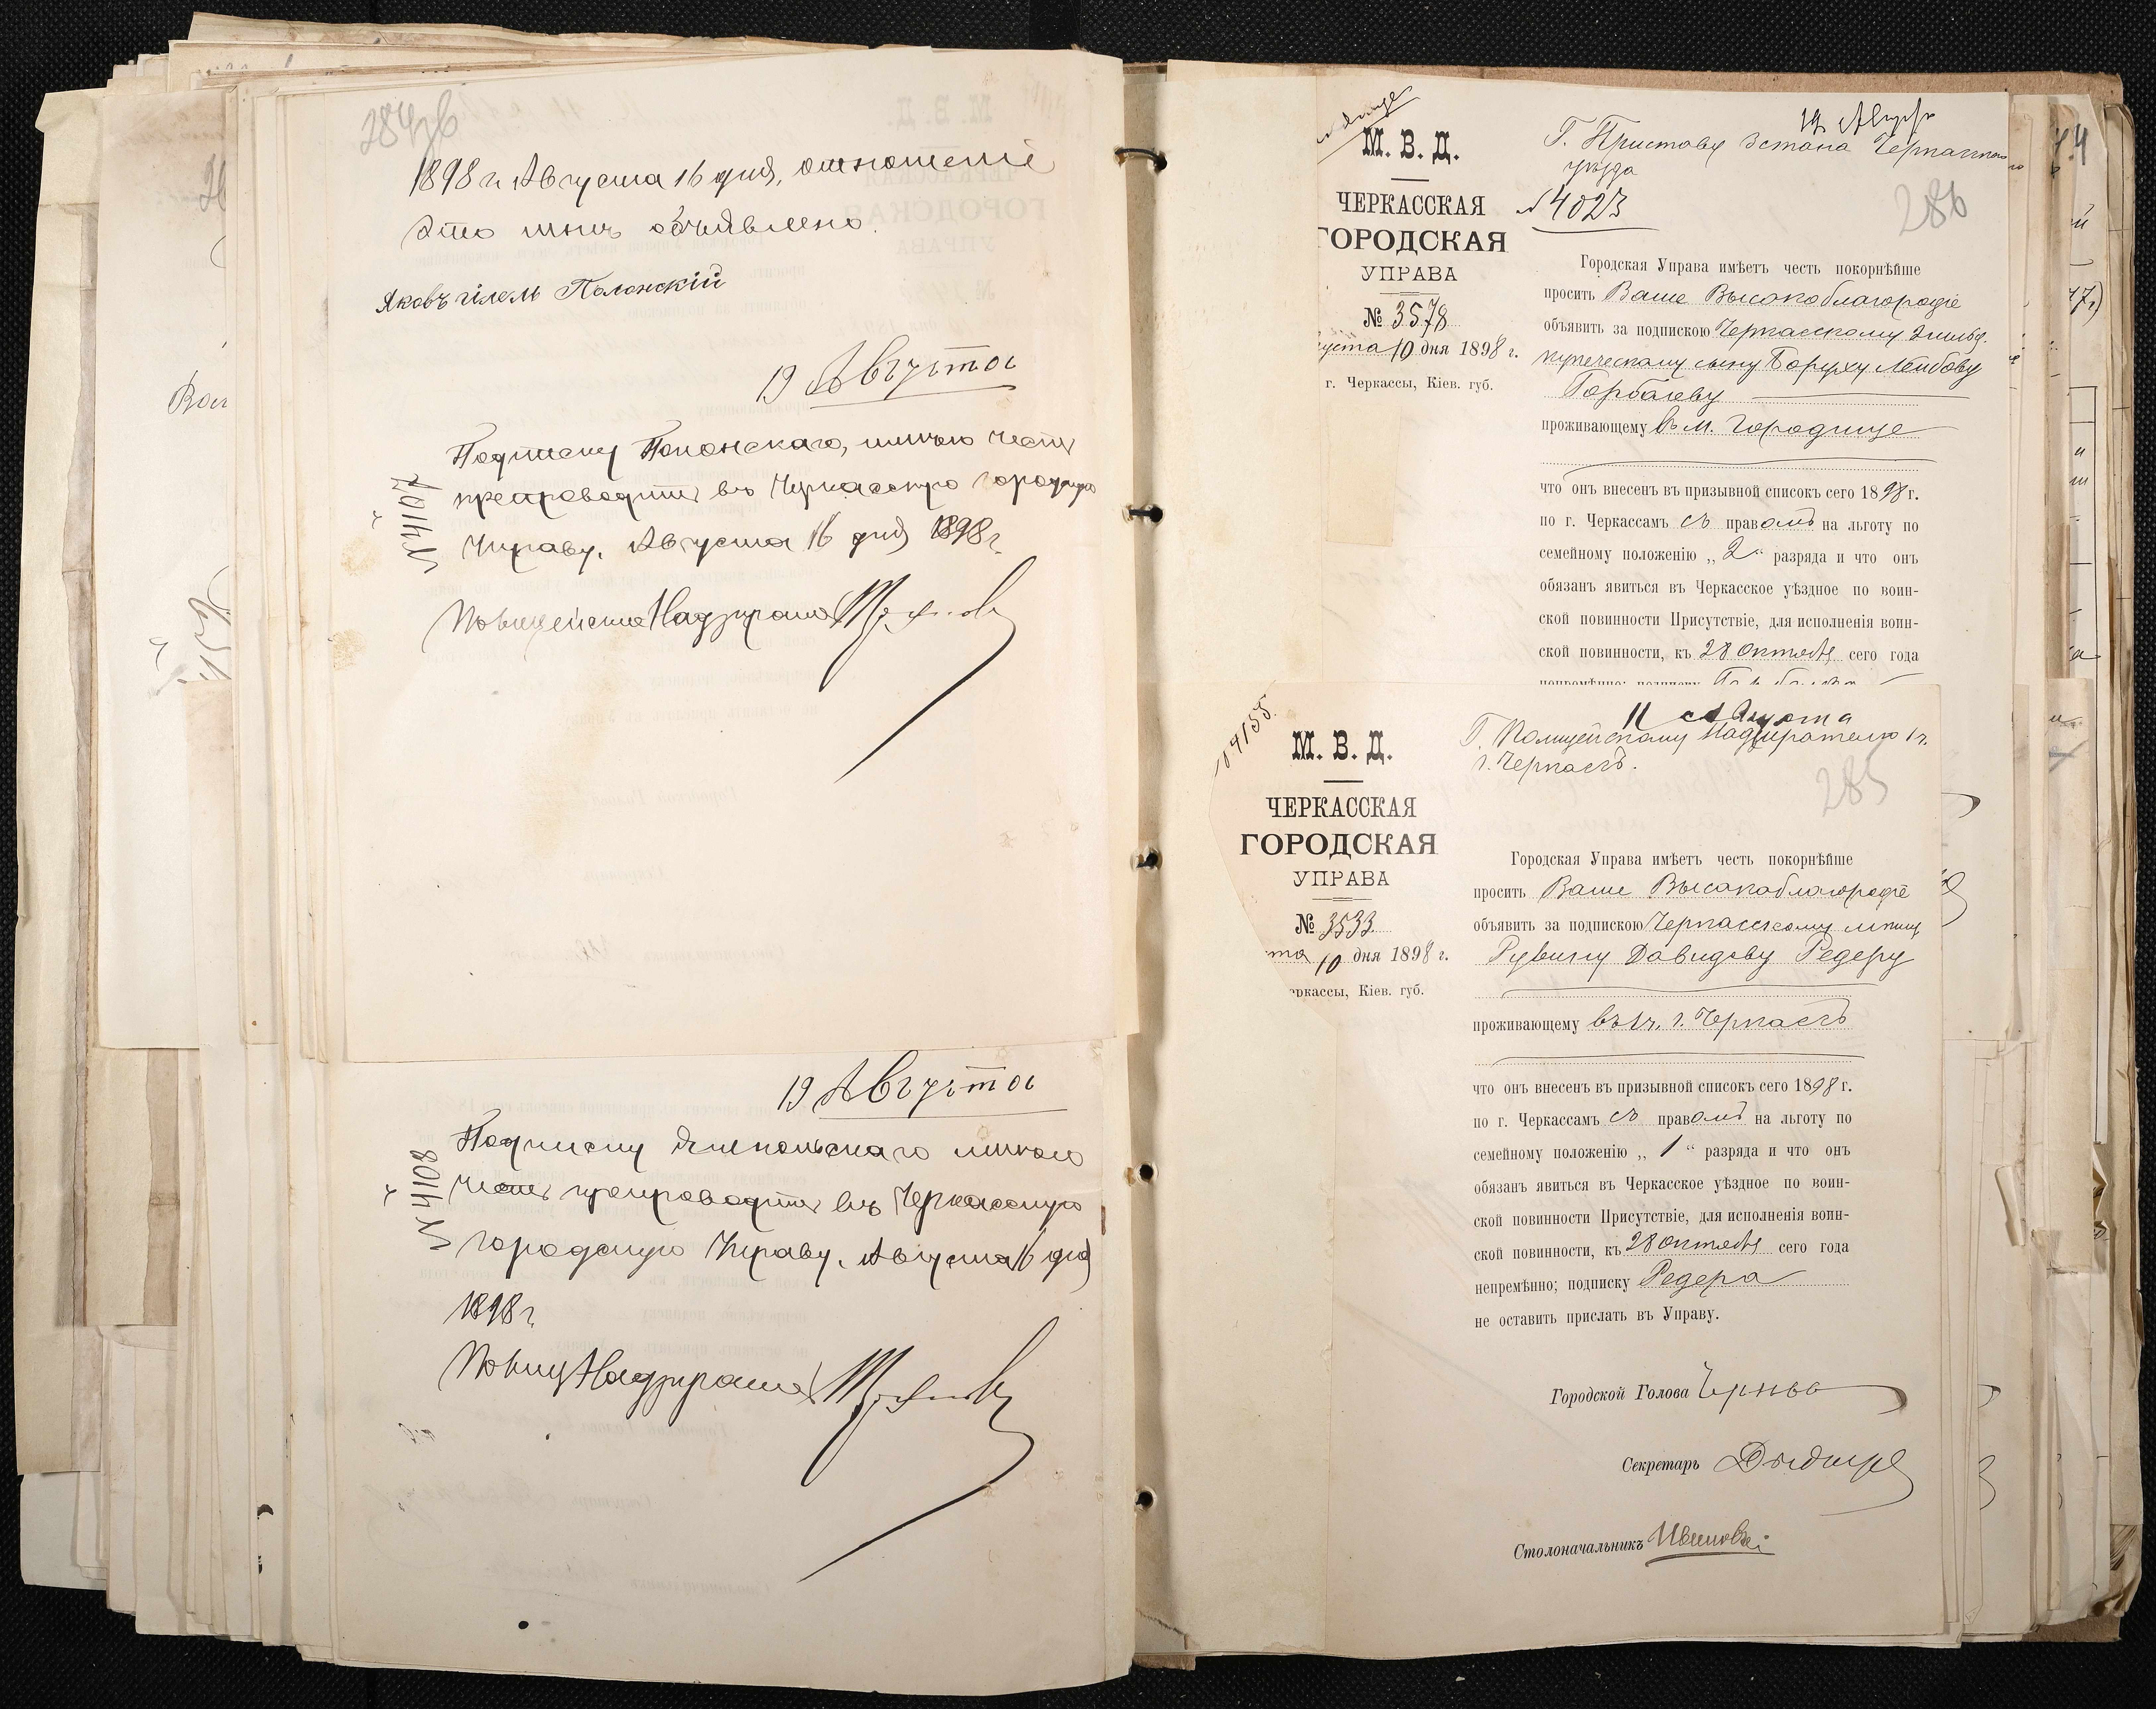 284об
1898 г. Августа 16 дня, отношеніе
это мнѣ объявлено.
Яковъ Гілель Полонскій
19 Августа
№ 4107
Подписку Полонскаго, имѣю честь
препроводить въ Черкасскую городскую
Управу. Августа 16 дня 1898 г.
Полицейскій Надзиратель
19 Августа
№ 4108
Подписку Ямпольскаго имѣю
честь препроводить въ Черкасскую
городскую Управу. Августа 16 дня
1898 г.
Полиц Надзиратель
М. В. Д.
ЧЕРКАССКАЯ
ГОРОДСКАЯ
УПРАВА
№ 3578
уста 10 дня 1898 г.
г. Черкассы, Кіев. губ.
12 Августа
Г. Приставу 3 стана Черкасскаго
уѣзда
№ 4023
286
Городская Управа имѣетъ честь покорнѣйше
просить Ваше Высокоблагородіе
объявить за подпискою Черкасскому 2 гильд.
купеческому сыну Боруху Лейбову
Горбаеву
проживающему въ м. Городище
что онъ внесенъ въ призывной списокъ сего 1898 г.
по г. Черкассамъ съ правомъ на льготу по
семейному положенію „2“ разряда и что онъ
обязанъ явиться въ Черкасское уѣздное по воин-
ской повинности Присутствіе, для исполненія воин-
ской повинности, къ 28 Октября сего года
непремѣнно; подписку
4155
М. В. Д.
ЧЕРКАССКАЯ
ГОРОДСКАЯ
УПРАВА
№ 3533
та 10 дня 1898 г.
еркассы, Кіев. губ.
11 Августа
Г. Полицейскому Надзирателю 1 ч.
г. Черкасъ.
285
Городская Управа имѣетъ честь покорнѣйше
просить Ваше Высокоблагородіе
объявить за подпискою Черкасскому мѣщ
Рувину Давидову Редеру
проживающему въ 1 ч. г. Черкасъ
что онъ внесенъ въ призывной списокъ сего 1898 г.
по г. Черкассамъ съ правомъ на льготу по
семейному положенію „1“ разряда и что онъ
обязанъ явиться въ Черкасское уѣздное по воин-
ской повинности Присутствіе, для исполненія воин-
ской повинности, къ 28 Октября сего года
непремѣнно; подписку Редера
не оставить прислать въ Управу.
Городской Голова
Секретарь
Столоначальникъ